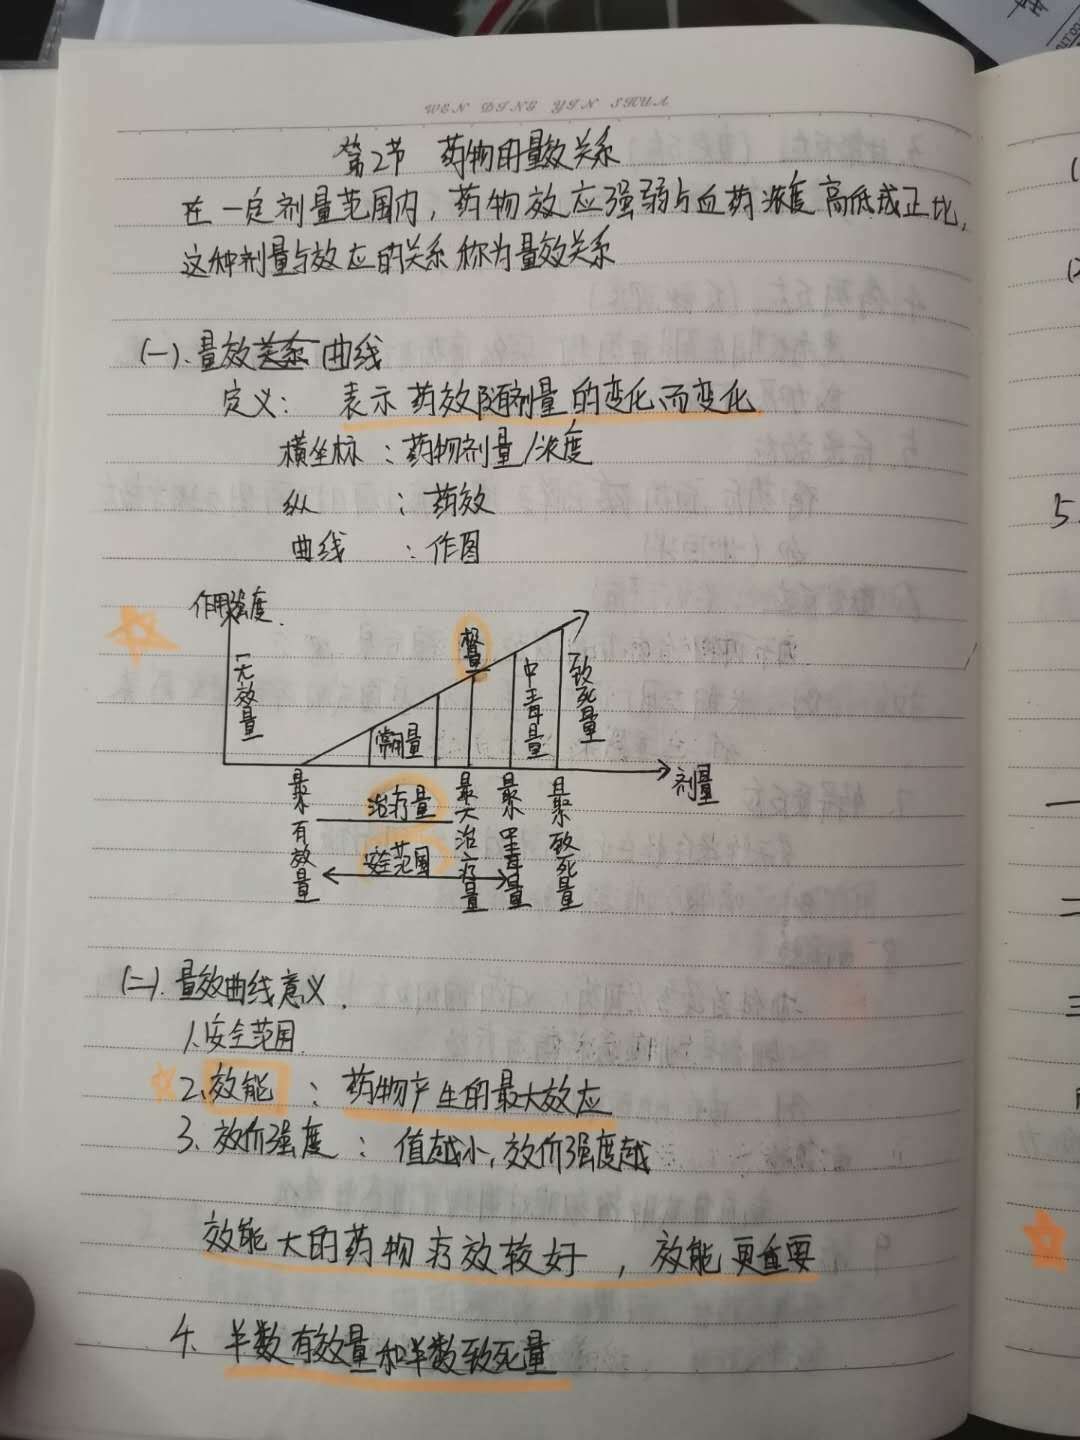 WEN DING YIN SHUA
第2节 药物的量效关系
在一定剂量范围内，药物效应强弱与血药浓度高低成正比，
这种剂量与效应的关系称为量效关系
(一). 量效关系曲线
定义： 表示药效随剂量的变化而变化
横坐标：药物剂量/浓度
纵 ：药效
曲线 ：作图
作用强度
无效量
常用量
极量
中毒量
致死量
剂量
最小有效量
治疗量
安全范围
最大治疗量
最小中毒量
最小致死量
(二). 量效曲线意义.
1. 安全范围.
2. 效能 ： 药物产生的最大效应
3. 效价强度 ： 值越小，效价强度越
效能大的药物疗效较好，效能更重要
4. 半数有效量和半数致死量
5.